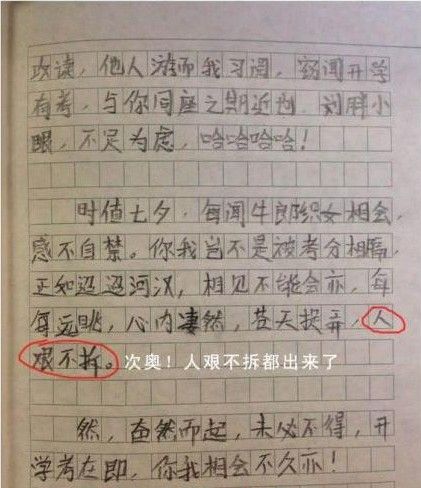 攻读，他人游而我习阅，窃闻开学
有考，与你同座之期近也，刘胖小
眼，不足为虑，哈哈哈哈！
时值七夕，每闻牛郎织女相会，
感不自禁。你我岂不是被考分相隔，
正如迢迢河汉，相见不能会亦，每
每远眺，心内凄然，苍天捉弄，人
艰不拆。次奥！人艰不拆都出来了
然，奋然而起，未必不得，开
学考在即，你我相会不久亦！